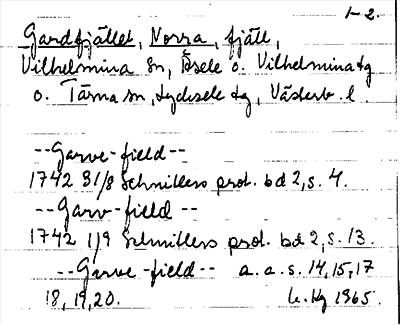 1-2.
Gardfjället, Norra, fjäll,
Vilhelmina sn, Åsele o. Vilhelmina tg
o. Tärna sn, Lycksele tg, Västerb. l.
--Garve-field--
1742 31/8 Schnitlers prot. bd 2, s. 4.
--Garv-field--
1742 1/9 Schnitlers prot. bd 2, s. 13.
--Garve-field-- a.a.s. 14, 15, 17
18, 19, 20. 1965.